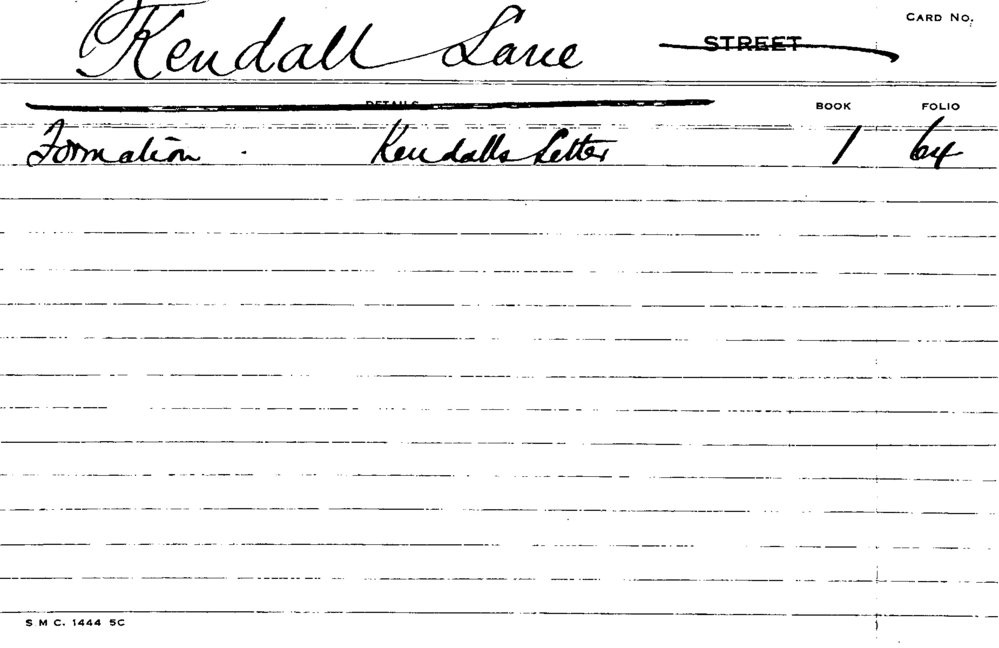 CARD NO.
Kendall Lane STREET
DETAILS BOOK FOLIO
Formation . Kendalls Letter 1 64
S M C. 1444 5C